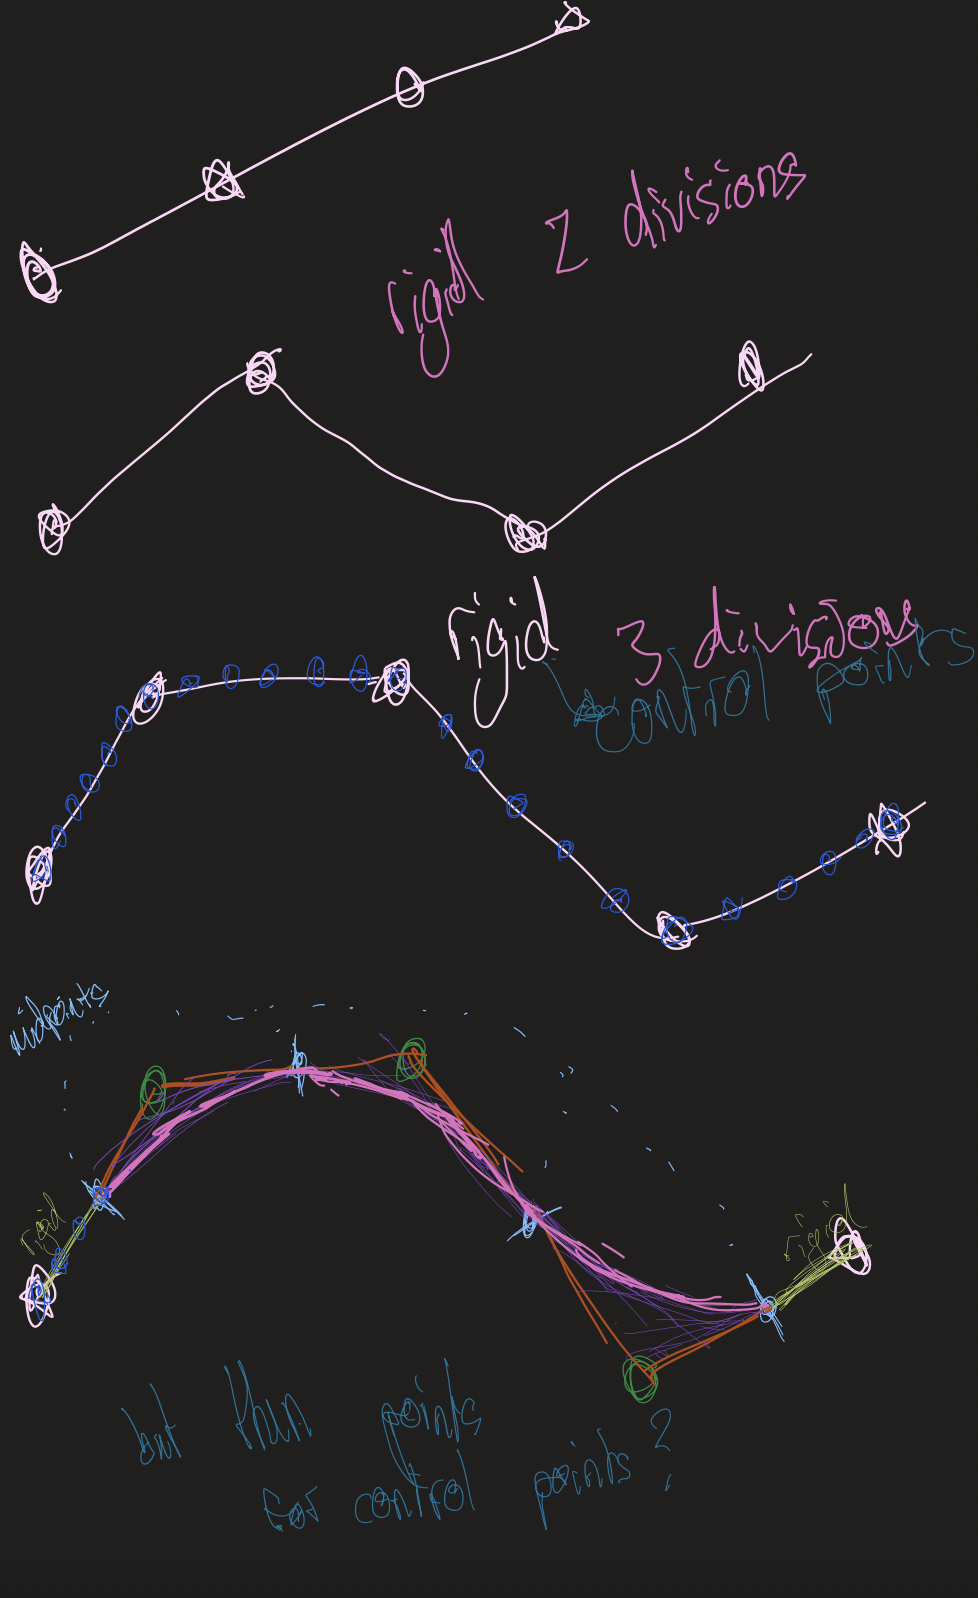 rigid 2 divisions
rigid 3 divisions
control points
midpoints
rigid
rigid
but than points
for control points?